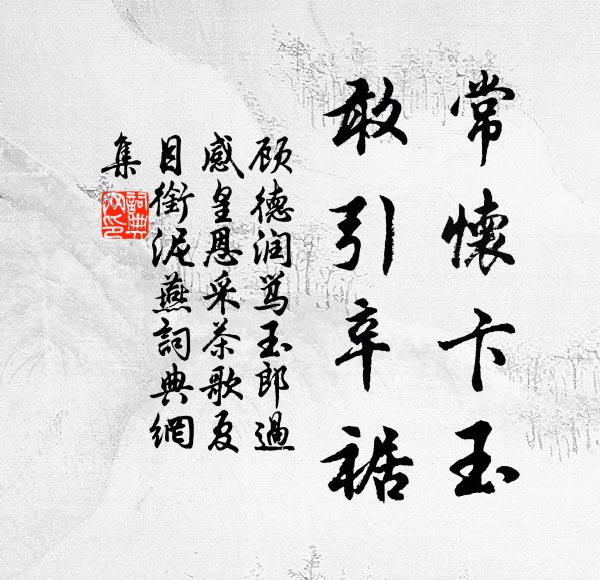 常懷卞玉
敢引辛裾
顾德润骂玉郎過
感皇恩采茶歌夏
目銜泥燕詞典網
集
詞典
网印